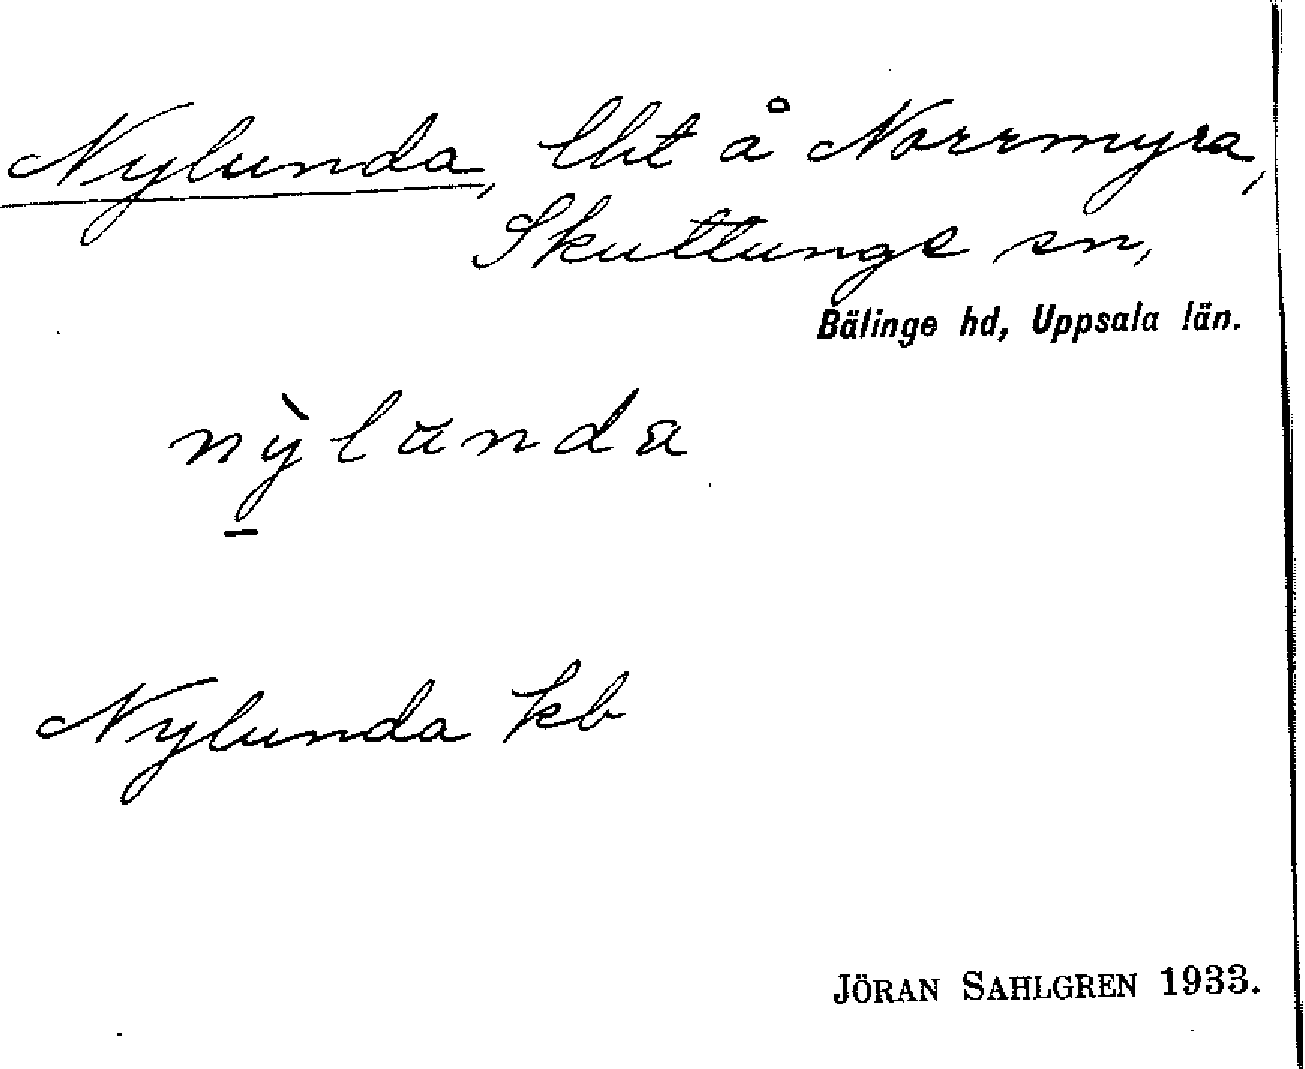 Nylunda, lht å Norrmyra,
Skuttunge sn,
Bälinge hd, Uppsala län.
Nylunda kb
JÖRAN SAHLGREN 1933.